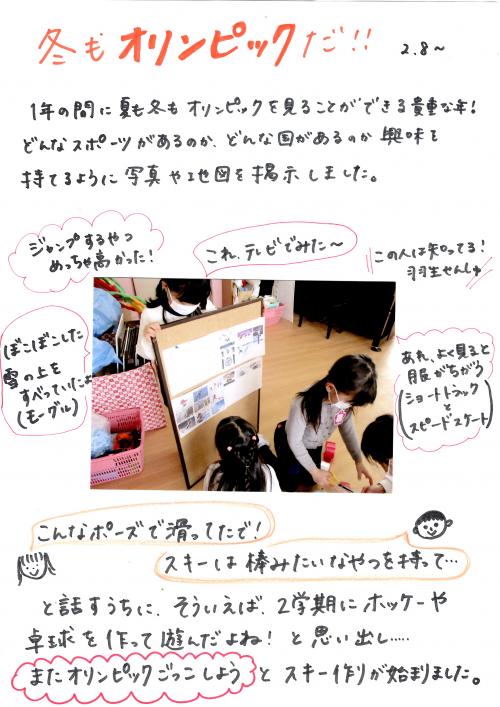 冬もオリンピックだ!! 2.8〜
1年の間に夏も冬もオリンピックを見ることができる貴重な年!
どんなスポーツがあるのか、どんな国があるのか興味を
持てるように写真や地図を掲示しました。
ジャンプするやつ
めっちゃ高かった!
これ、テレビでみた〜
この人は知ってる!
羽生せんしゅ
ぼこぼこした
雪の上を
すべっていたよ
(モーグル)
あれ、よく見ると
服がちがう
(ショートトラック
と
スピードスケート)
こんなポーズで滑ってたで!
スキーは棒みたいなやつを持って…
と話すうちに、そういえば、2学期にホッケーや
卓球を作って遊んだよね!と思い出し……
またオリンピックごっこしようとスキー作りが始まりました。